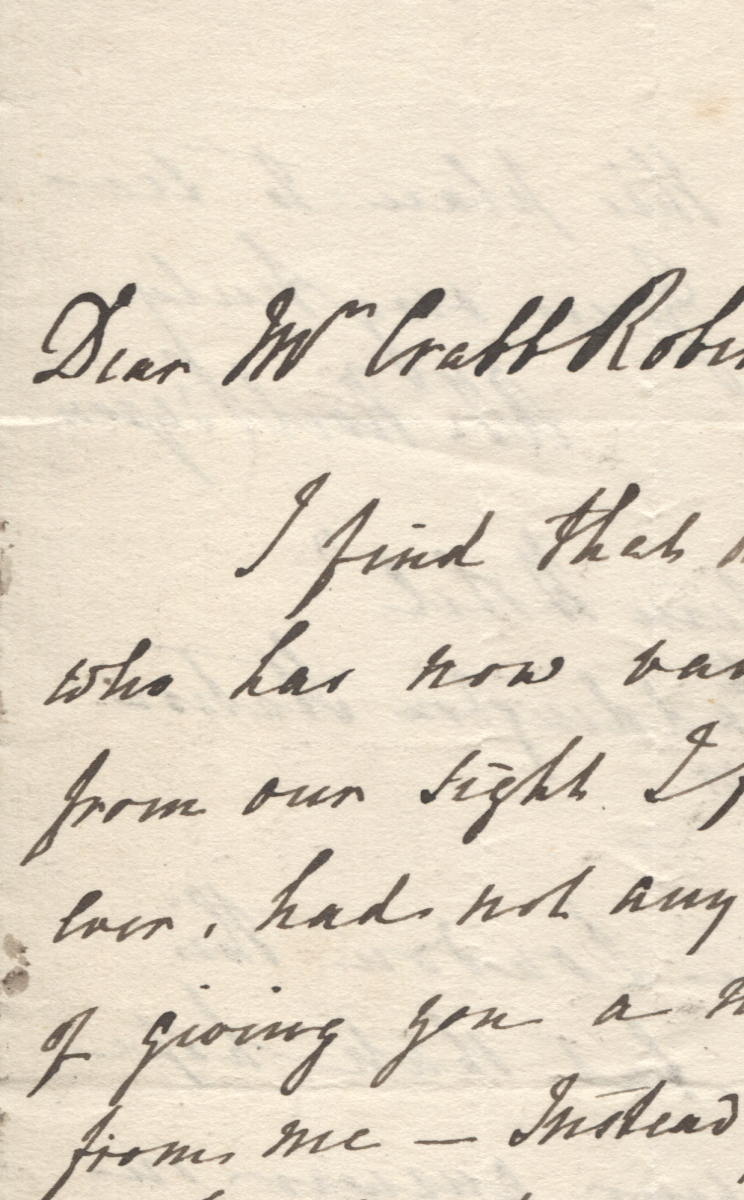 Dear Mr Crabb Robin
I find that
who has now van
from our sight I f
ever, had not any
of giving you a n
from me — Instead